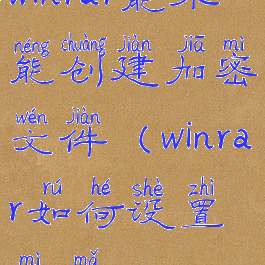 néng chuàng jiàn jiā mì
能创建加密
wén jiàn
文件（winra
rú hé shè zhì
r如何设置
mì mǎ